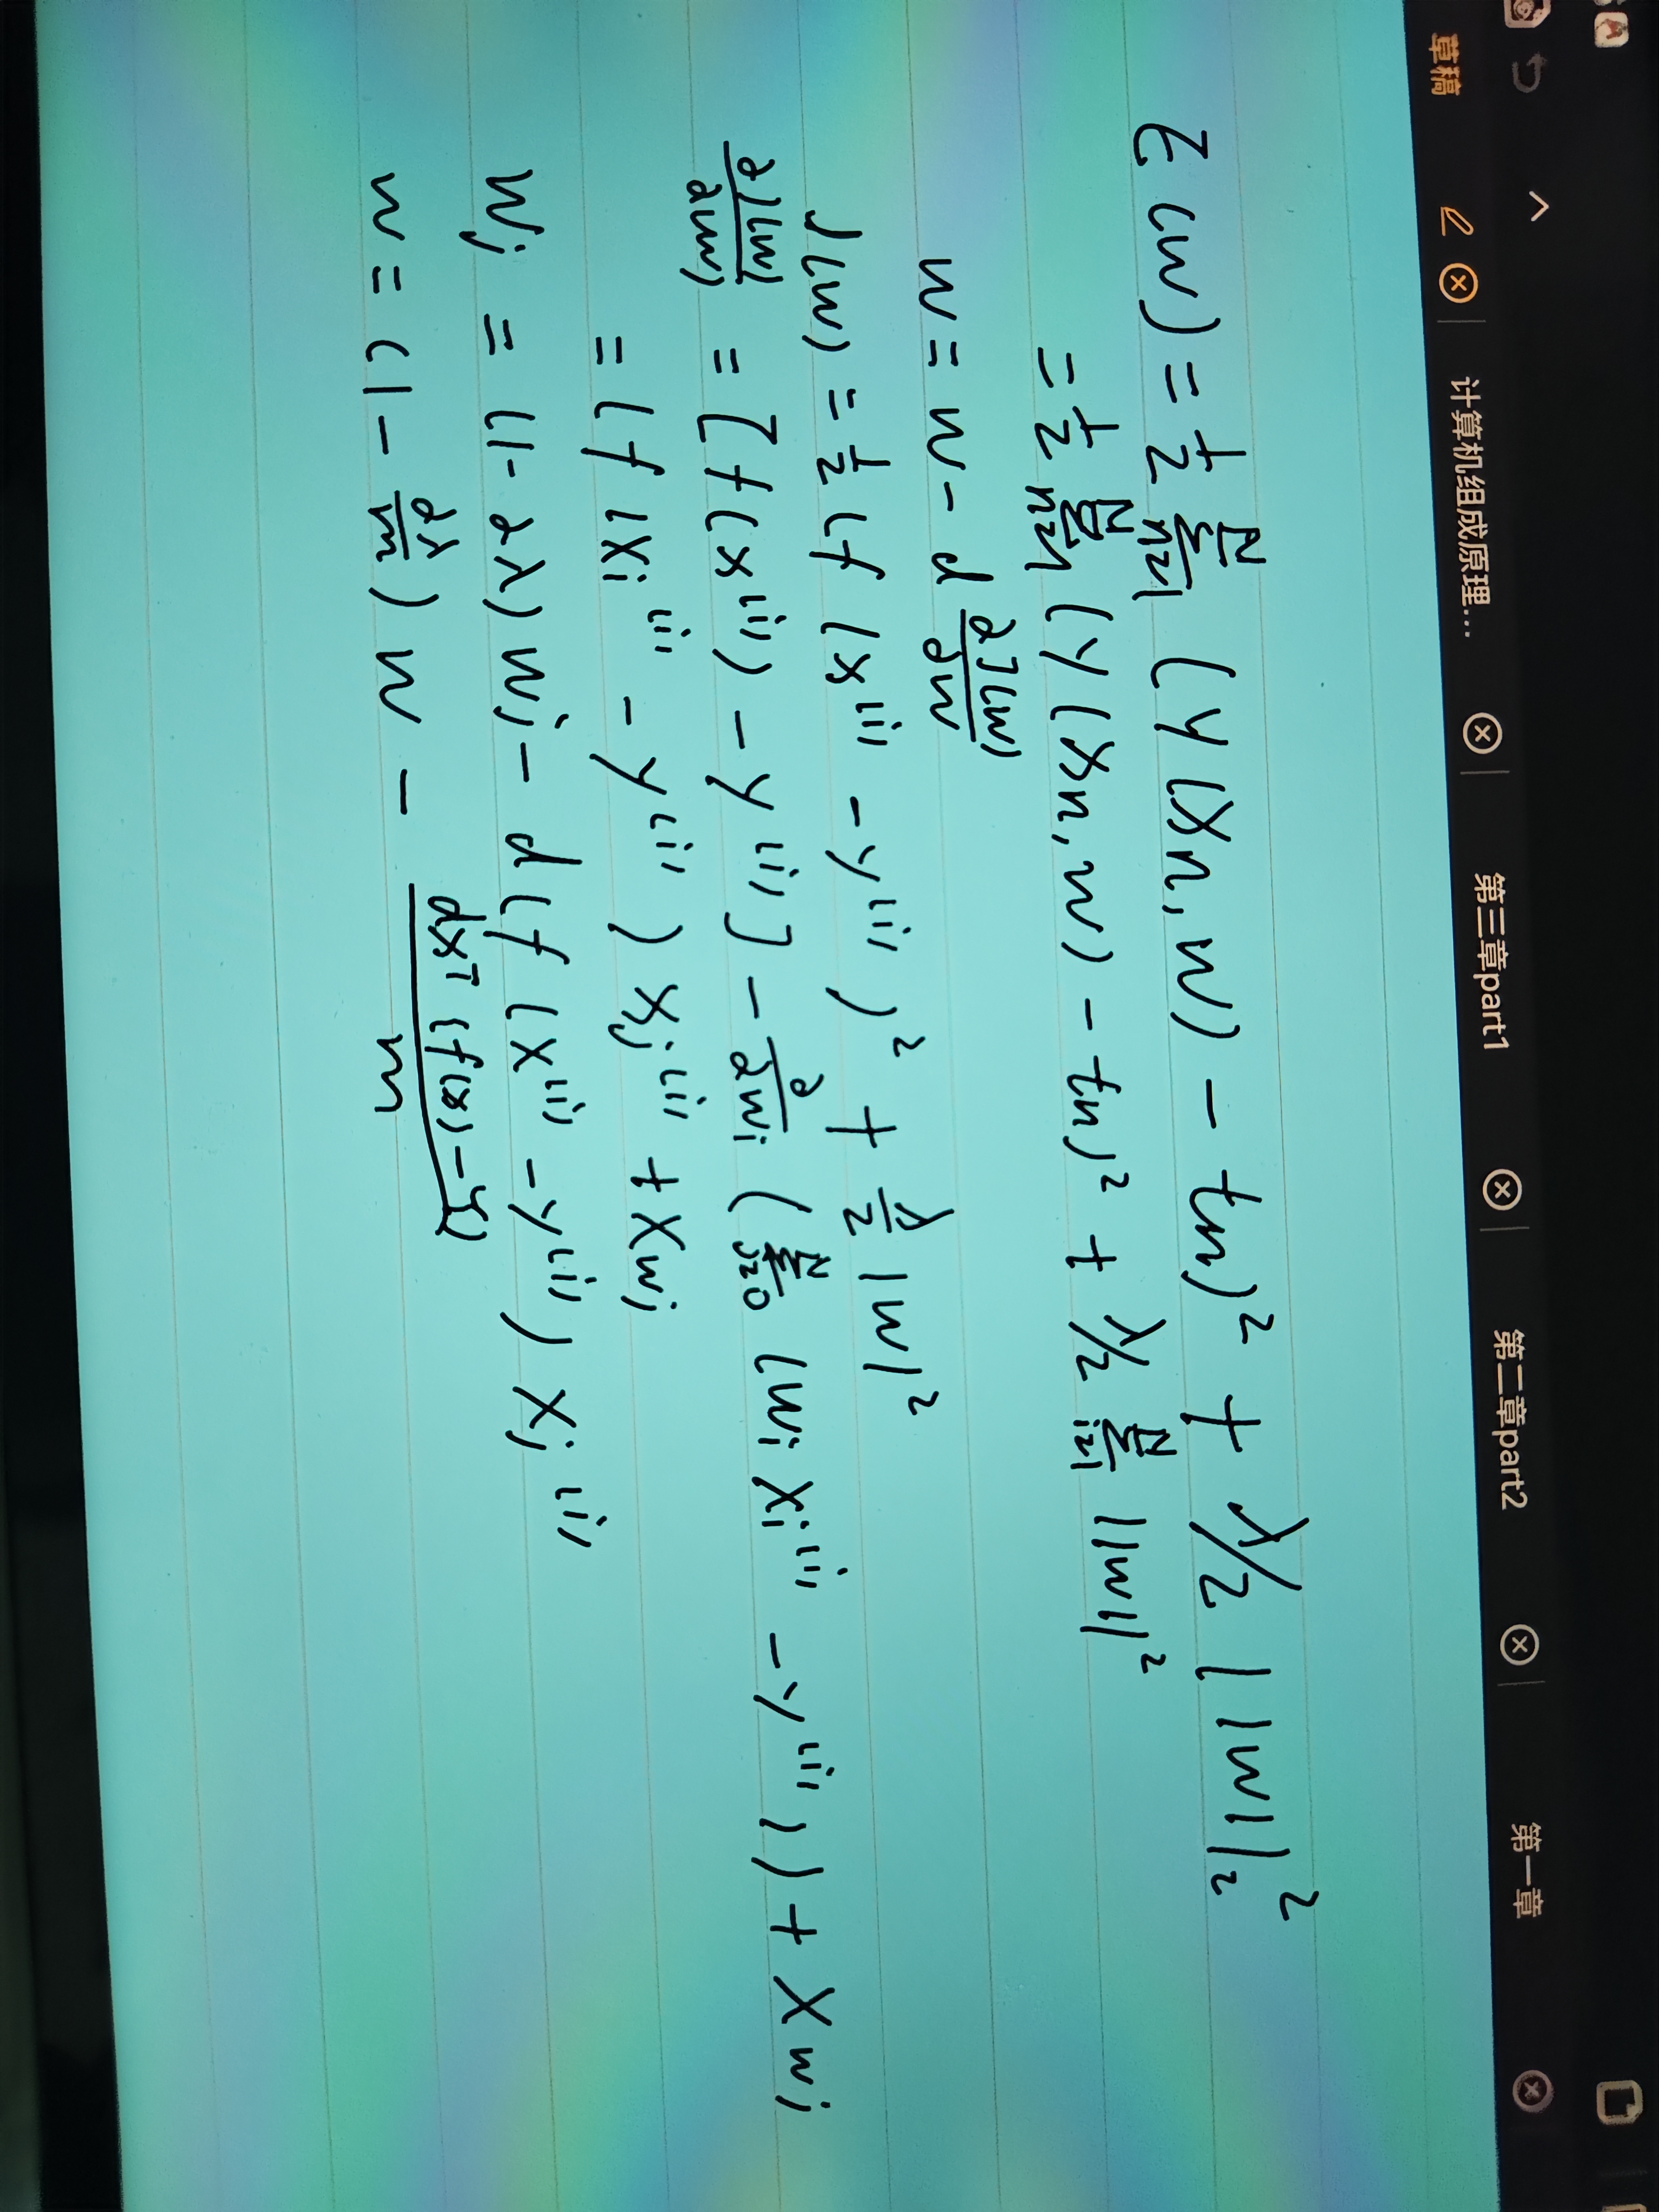 草稿 计算机组成原理... 第三章part1 第二章part2 第一章
E(w) = 1/2 Σ_{n=1}^{N} (y(xn, w) - tn)² + λ/2 ||w||₂²
= 1/2 Σ_{n=1}^{N} (y(xn, w) - tn)² + λ/2 Σ_{i=1}^{N} ||w||²
w = w - α ∂J(w)/∂w
J(w) = 1/2 (f(x^(i) - y^(i))² + λ/2 |w|²
∂J(w)/∂w) = [f(x^(i)) - y^(i)] - ∂/∂wi (Σ_{j=0}^{N} (wi xi^(i) - y^(i))) + λwj
= (f(xi^(i) - y^(i)) xj^(i) + λwj
wj = (1 - αλ) wj - α (f(x^(i) - y^(i)) xj^(i)
w = (1 - αλ/m) w - αx^T(f(x) - y)/m